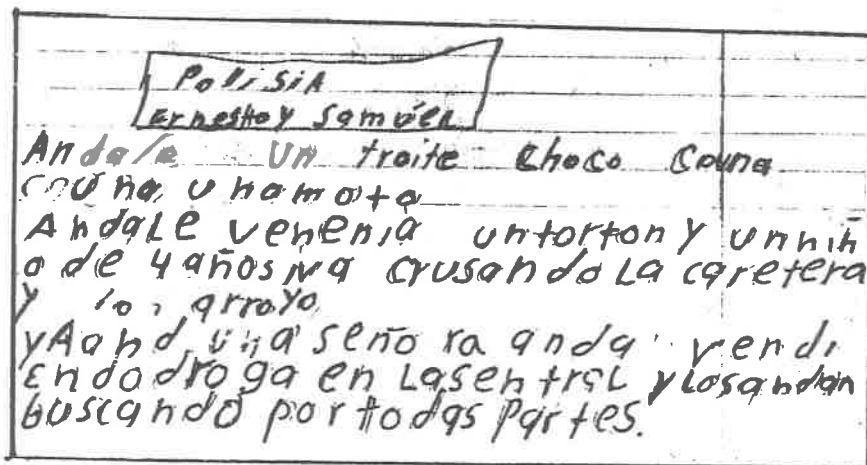 PoliSiA
Ernesto y Samuel
Andale un traite choco couna
couna unamota
AndaLE venenia untorton y unnin
o de 4 años iva crusando La caretera
y lo arroyo
yAand una señora anda vendi
Endo droga en Lasentral y Losandan
buscando por todas Partes.